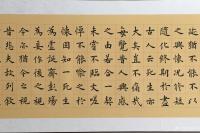 迹猶不能不以
之興懷況脩短
隨化終期於盡
古人云死生亦
大矣豈不痛哉
每覽昔人興感
之由若合一契
未嘗不臨文嗟
悼不能喻之於
懷固知一死生
為虛誕齊彭殤
為妄作後之視
今亦猶今之視
昔悲夫故列敘